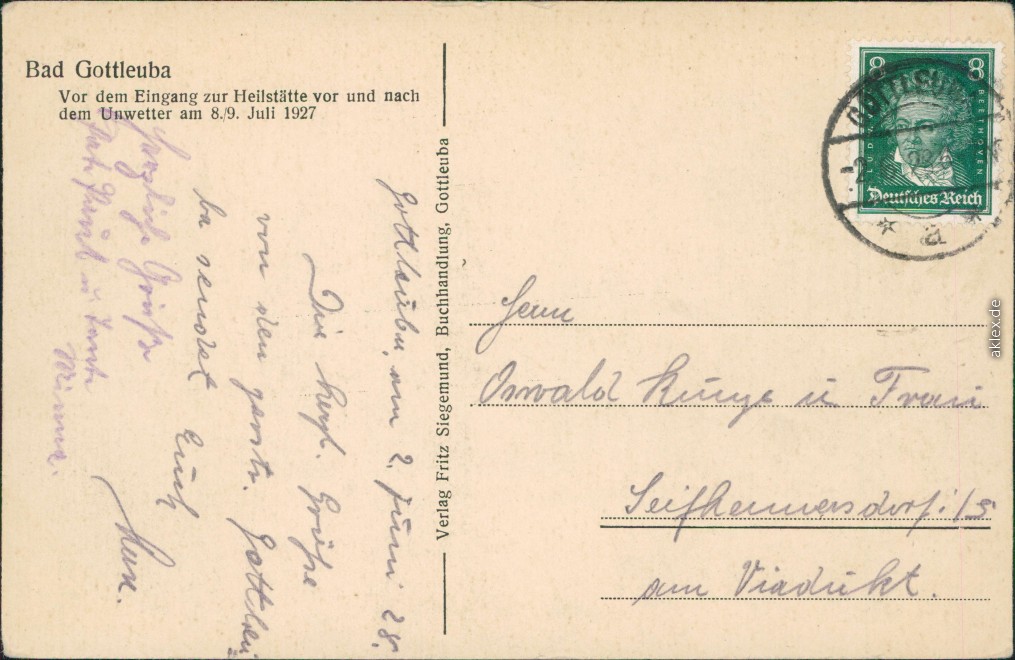 Bad Gottleuba
Vor dem Eingang zur Heilstätte vor und nach
dem Unwetter am 8./9. Juli 1927
Gottleuba, am 2. Juni 28.
Die herzl. Grüße
von den gastr. Gottleu
ba sendet Euch
Max.
Herzliche Grüße
Tante
Minna.
Verlag Fritz Siegemund, Buchhandlung, Gottleuba
8 8
LUDWIG BEETHOVEN
Deutsches Reich
GOTTLEUBA
a
Herrn
Oswald Kunze u Frau
Seifhennersdorf i/S
am Viadukt.
aklex.de